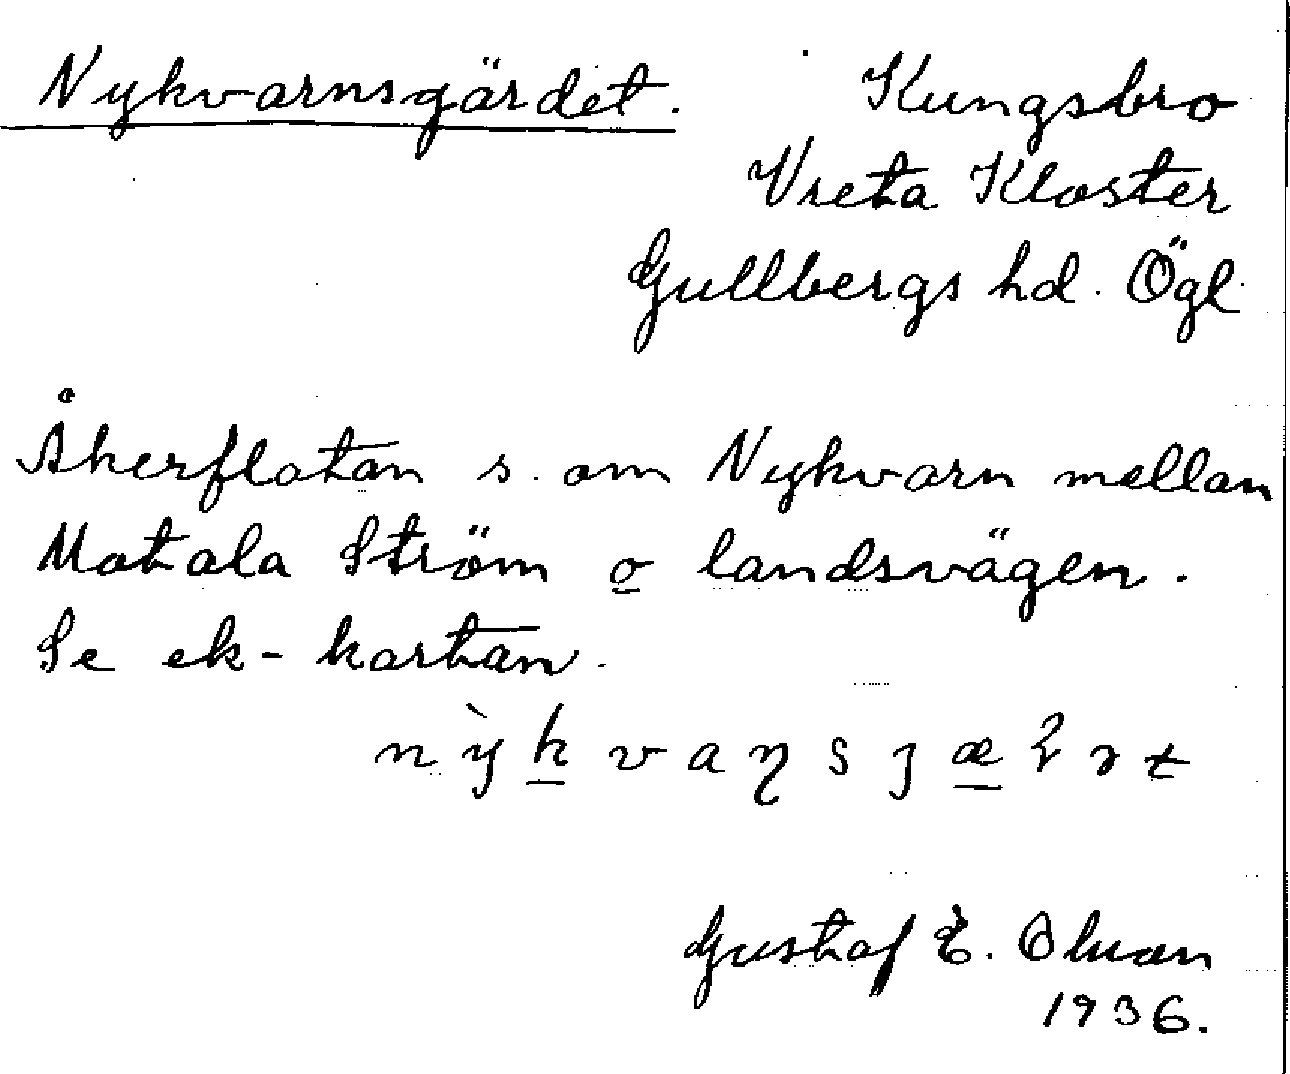 Nykvarnsgärdet. Kungsbro
Vreta Kloster
Gullbergs hd. Ögl.
Åkerflatan s. om Nykvarn mellan
Motala Ström o landsvägen.
Se ek-kartan.
Gustaf E.
1936.